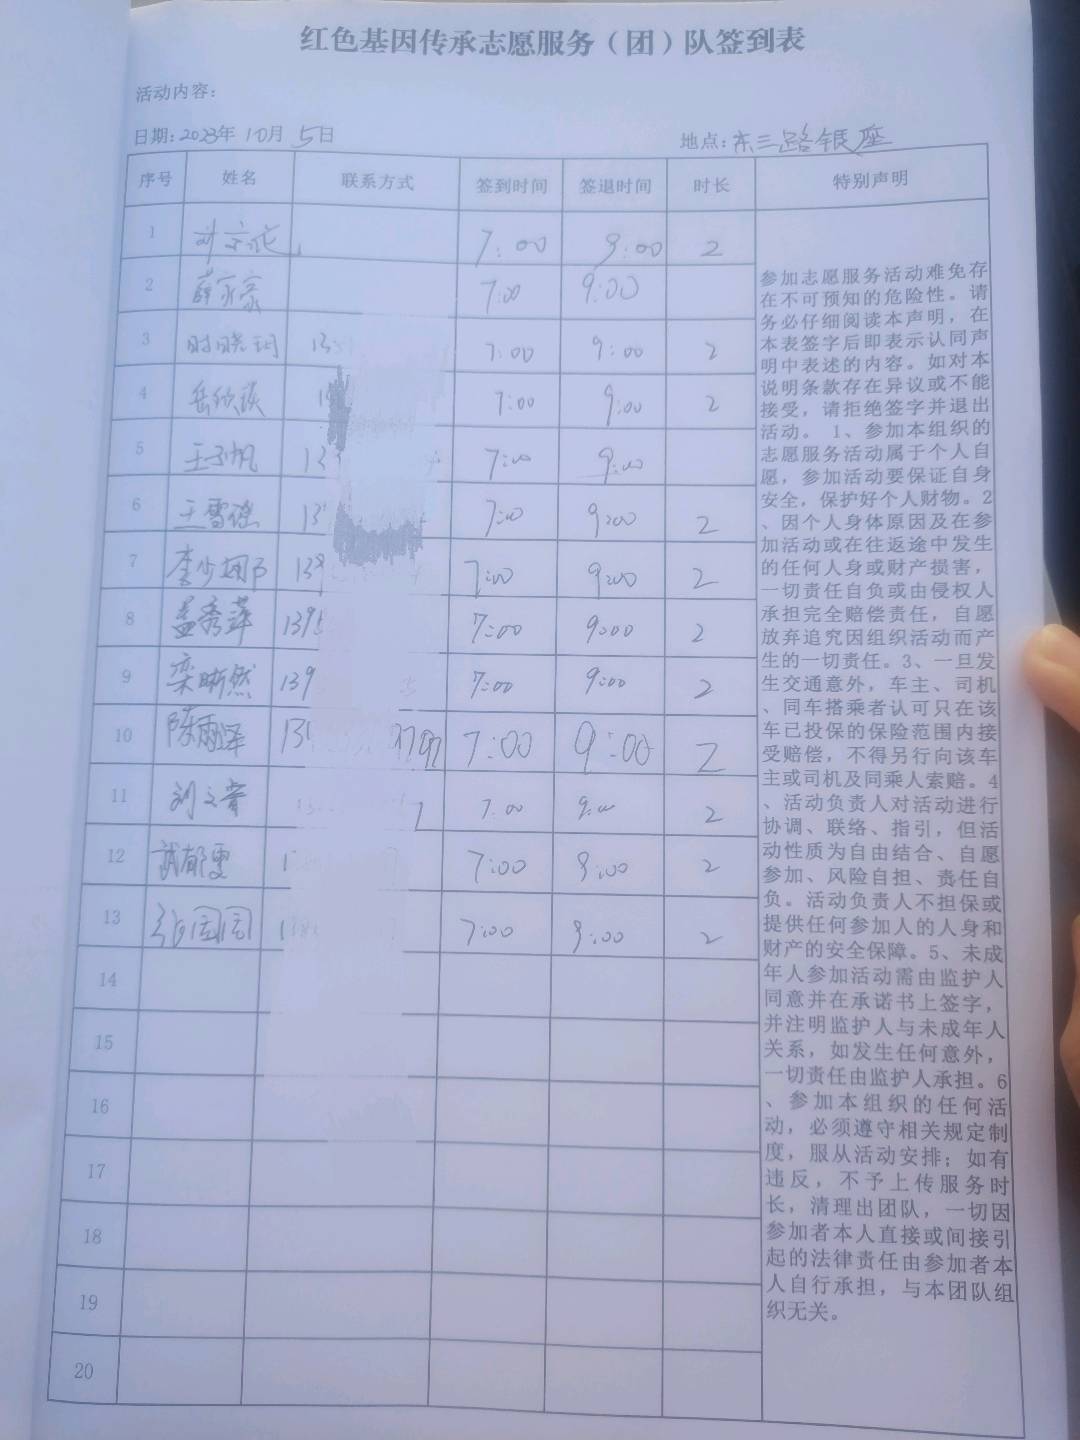 红色基因传承志愿服务（团）队签到表
活动内容：
日期：2023年10月5日 地点：东三路银座
序号 姓名 联系方式 签到时间 签退时间 时长 特别声明
1 7:00 9:00 2
2 薛家豪 7:00 9:00
3 7:00 9:00 2
4 7:00 9:00 2
5 王子帆 13 7:00 9:00
6 王雪瑶 13 7:00 9:00 2
7 李少珊 139 7:00 9:00 2
8 孟秀萍 1395 7:00 9:00 2
9 栾晰然 139 7:00 9:00 2
10 陈雨泽 13 9792 7:00 9:00 2
11 刘文睿 7 7:00 9:00 2
12 武郁雯 1 7:00 9:00 2
13 7:00 9:00 2
14
15
16
17
18
19
20
参加志愿服务活动难免存
在不可预知的危险性。请
务必仔细阅读本声明，在
本表签字后即表示认同声
明中表述的内容。如对本
说明条款存在异议或不能
接受，请拒绝签字并退出
活动。 1、参加本组织的
志愿服务活动属于个人自
愿，参加活动要保证自身
安全，保护好个人财物。2
、因个人身体原因及在参
加活动或在往返途中发生
的任何人身或财产损害，
一切责任自负或由侵权人
承担完全赔偿责任，自愿
放弃追究因组织活动而产
生的一切责任。3、一旦发
生交通意外，车主、司机
、同车搭乘者认可只在该
车已投保的保险范围内接
受赔偿，不得另行向该车
主或司机及同乘人索赔。4
、活动负责人对活动进行
协调、联络、指引，但活
动性质为自由结合、自愿
参加、风险自担、责任自
负。活动负责人不担保或
提供任何参加人的人身和
财产的安全保障。5、未成
年人参加活动需由监护人
同意并在承诺书上签字，
并注明监护人与未成年人
关系，如发生任何意外，
一切责任由监护人承担。6
、参加本组织的任何活
动，必须遵守相关规定制
度，服从活动安排；如有
违反，不予上传服务时
长，清理出团队，一切因
参加者本人直接或间接引
起的法律责任由参加者本
人自行承担，与本团队组
织无关。